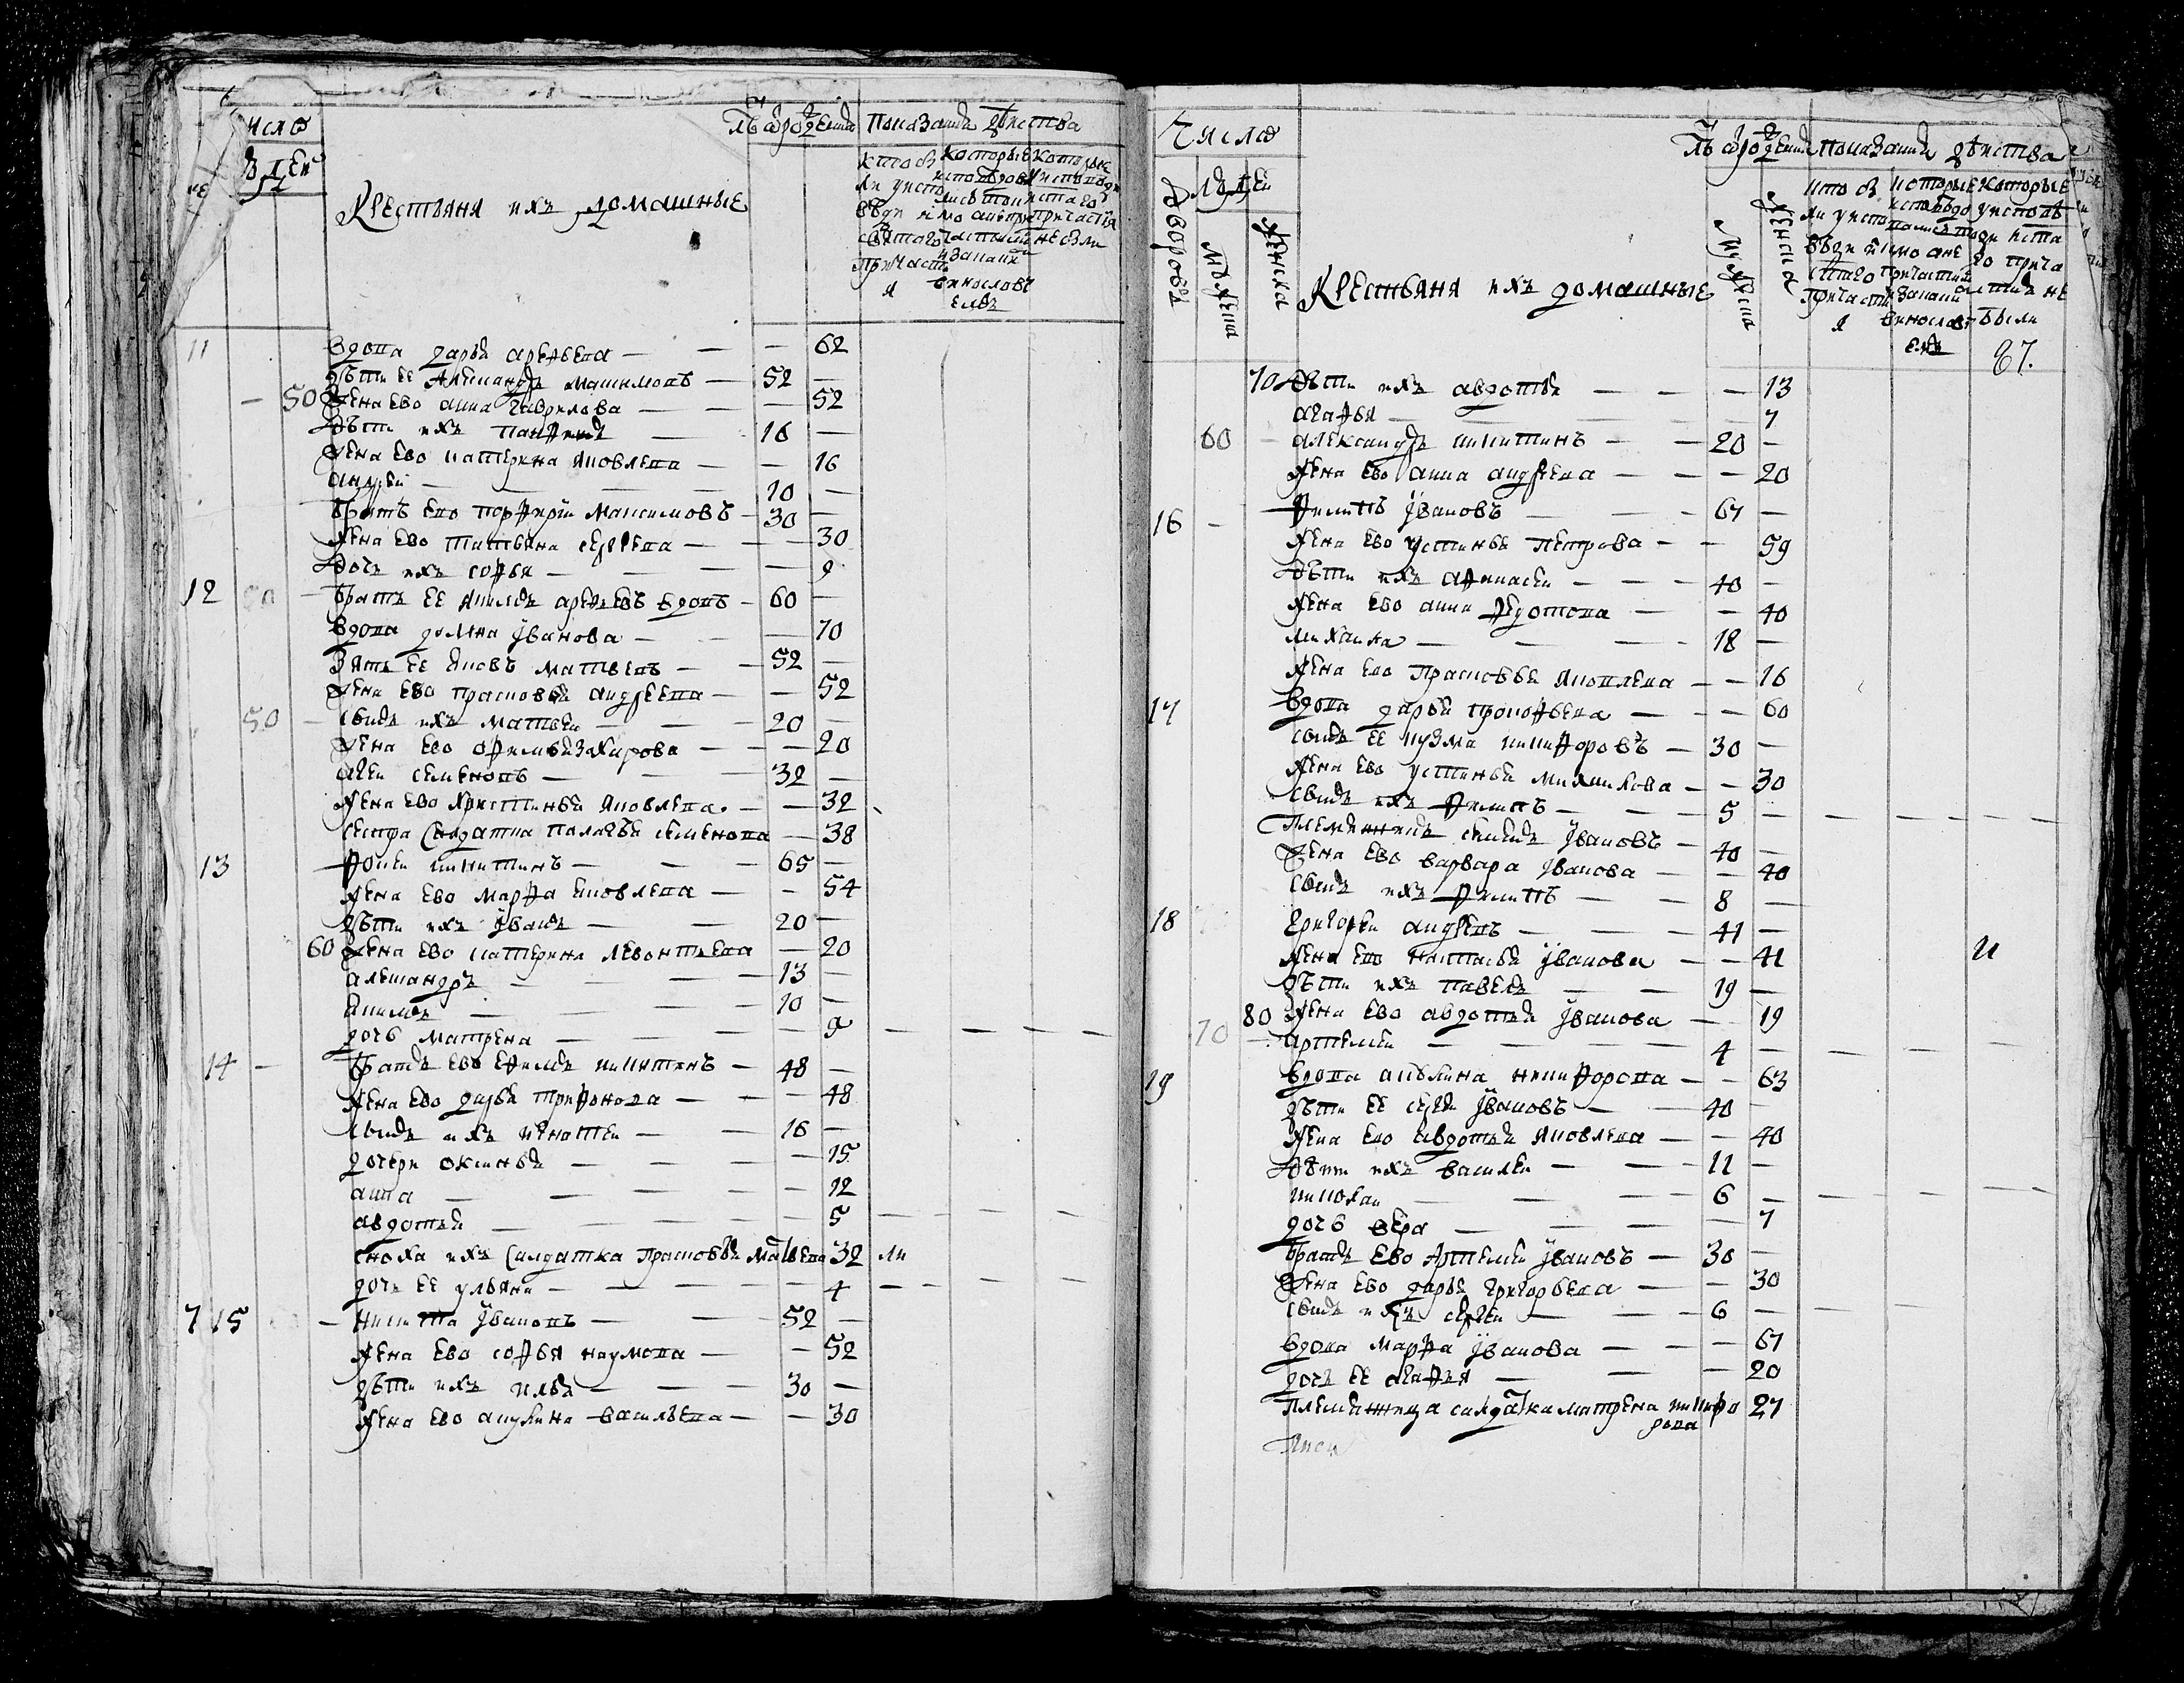 Число
людей
Крестьяня ихъ домашные
Лѣ от рождения
Показания действа
кто были у исповеди и святаго причастия
которые исповедовались токмо а не причастились и за каким винословием
которые у исповеди и святаго причастия не были
11 вдова дарья арефьева — — — 62
дѣти ее Алеѯандръ маѯимовъ — 52 —
— 50 жена ево анна гаврилова — — — 52
дѣти ихъ — 16 —
жена ево катерина яковлева — — 16
андрей — — — 10 —
братъ ево порфирий Максимовъ — 30 —
жена ево татьяна сергеева — — — 30
дочь ихъ софья — — — 9
12 братъ ее арефьевъ вдовъ — 60 —
вдова домна Іванова — — — 70
зять ее яковъ матвеевъ — — 52 —
жена ево прасковья андреева — — 52
50 — сынъ ихъ матвей — — 20 —
жена ево захарова — — 20
семеновъ — — — 32 —
жена ево христинья яковлева — — 32
сестра салдатка палагея семенова — 38
13 фокей никитинъ — — — 65 —
жена ево марфа яковлева — — 54
дѣти ихъ Іванъ — — 20 —
60 жена ево катерина левонтьева — 20
алеѯандръ — — — 13 —
якимъ — — — 10 —
дочь матрена — — — 9 — — — —
14 — братъ ево ефимъ никитинъ — 48 —
жена ево дарья трифонова — — — 48
сынъ ихъ игнатей — — 16 —
дочери оксинья — — — 15
анна — — — — 12
авдотья — — — — 5 — — — —
сноха ихъ салдатка прасковья матвеева 32
дочь ее ульяна — — — — 4 — — — —
7 15 — никита Івановъ — — — 52 —
жена ево софья наумова — — 52
дѣти ихъ илья — — — 30 —
жена ево акулина васильева — — 30
Число
дворовъ
людей
мужеска
женска
Крестьяня ихъ домашные
Лѣ от рождения
мужеска
женска
Показания дѣиства
кто были у исповеди и святаго причастия
которые исповедовались токмо а не причастились и за каким винословием
которые у исповеди и святаго причастия не были
87.
70 дѣти ихъ авдотья — — — 13
агафья — — — 7
60 — александръ никитинъ — — 20 —
жена ево анна андреева — — — 20
16 — филипъ Івановъ — — — 67 —
жена ево устинья петрова — — 59
дѣти ихъ афанасей — — — 40 —
жена ево анна федотова — — 40
михаила — — — 18 —
жена ево прасковья яковлева — — 16
17 вдова дарья прокофьева — — — 60
сынъ ее кузма никифоровъ — 30 —
жена ево устинья михаилова — — 30
сынъ ихъ филипъ — — — 5 — — — — —
племянникъ Івановъ — 40 —
жена ево варвара Іванова — — 40
сынъ ихъ филипъ — — 8 —
18 григорей андреевъ — — — 41 —
жена ево настасья Іванова — — 41
дѣти ихъ павелъ — — 19 —
80 жена ево авдотья Іванова — 19
70 — артемей — — — — 4 — — — —
19 вдова акулина никифорова — — 63
дѣти ее сергей Івановъ — — 40 —
жена ево авдотья яковлева — — 40
дѣти ихъ василей — — — 11 —
николай — — — 6 — — — — —
дочь вера — — — — 7
братъ ево артемей Івановъ — 30 —
жена ево дарья григорьева — — 30
сынъ ихъ сергей — — — 6 — — — — —
вдова марфа Іванова — — — 67
дочь ее агафья — — — 20
племянница салдатка матрена никифо 27
рова